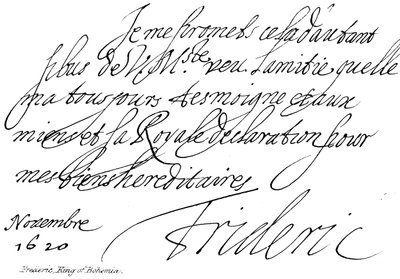 Je me promets cela d'autant
plus de V. M.ste veu l'amitie quelle
m'a tousjours tesmoigne et aux
miens et sa Royale declaration pour
mes biens hereditaires
Novembre
1620
Frideric
Frederic, King of Bohemia.